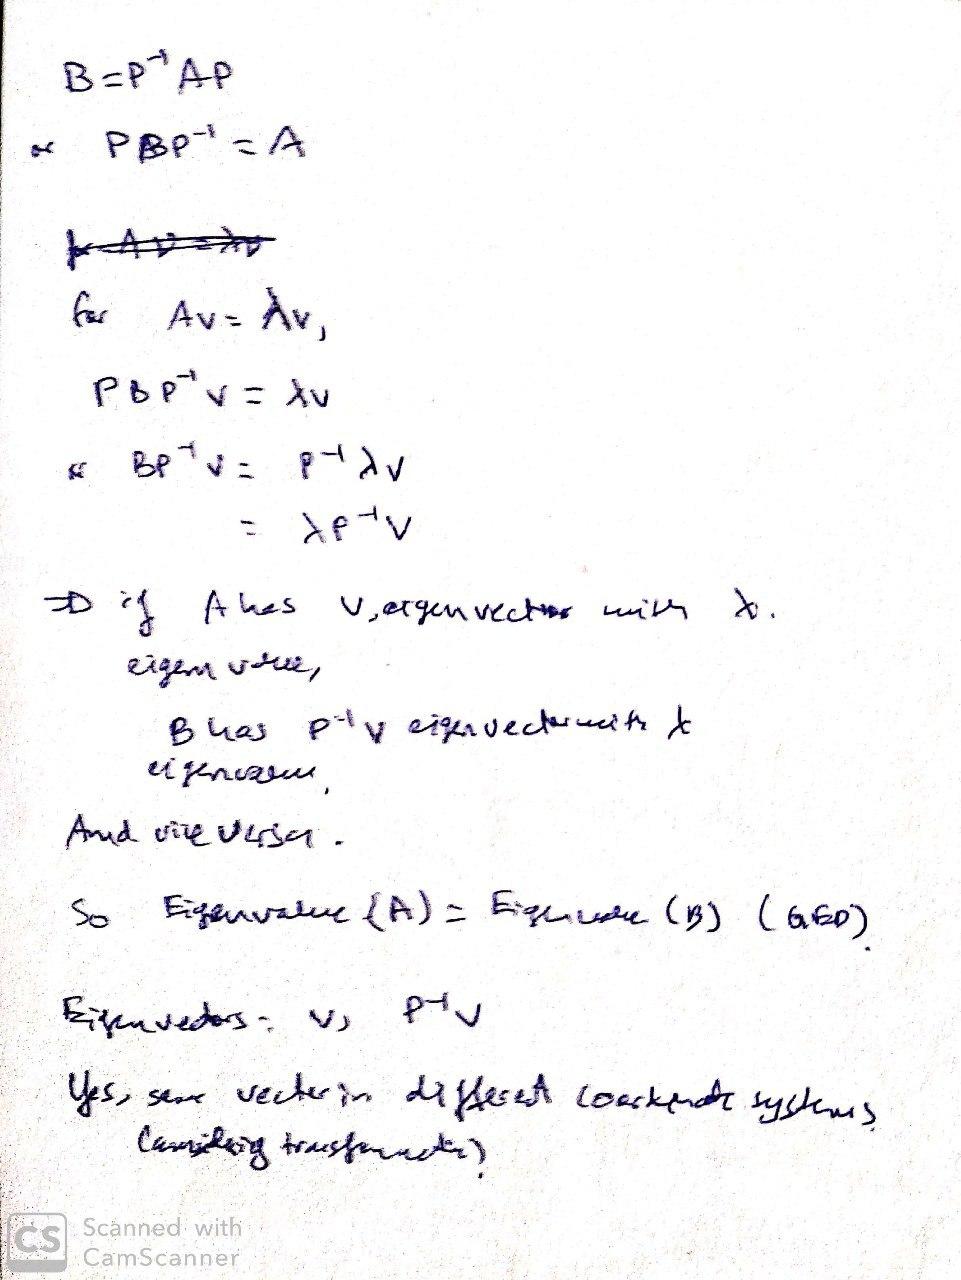 B=P⁻¹AP
or PBP⁻¹ = A
for Av = λv,
PBP⁻¹v = λv
or BP⁻¹v = P⁻¹λv
= λP⁻¹v
⇒ if A has v, eigenvector with λ.
eigen value,
B has P⁻¹v eigenvector with λ
eigenvalue,
And vice versa.
So Eigenvalue (A) = Eigenvalue (B) (QED).
Eigenvectors: v, P⁻¹v
Yes, same vector in different coordinate systems
CS Scanned with
CamScanner